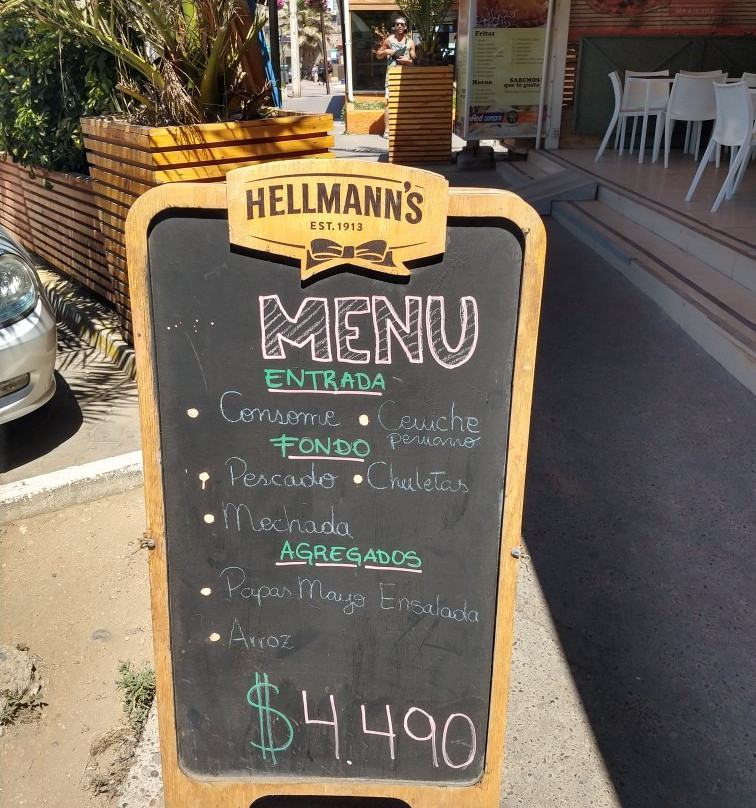 Fritas
Horno
SABEMOS
que te gusta
Red compra
HELLMANN'S
EST. 1913
MENU
ENTRADA
• Consome • Ceuiche
peruano
FONDO
• Pescado • Chuletas
• Mechada
AGREGADOS
• Papas Mayo Ensalada
• Arroz
$4.490